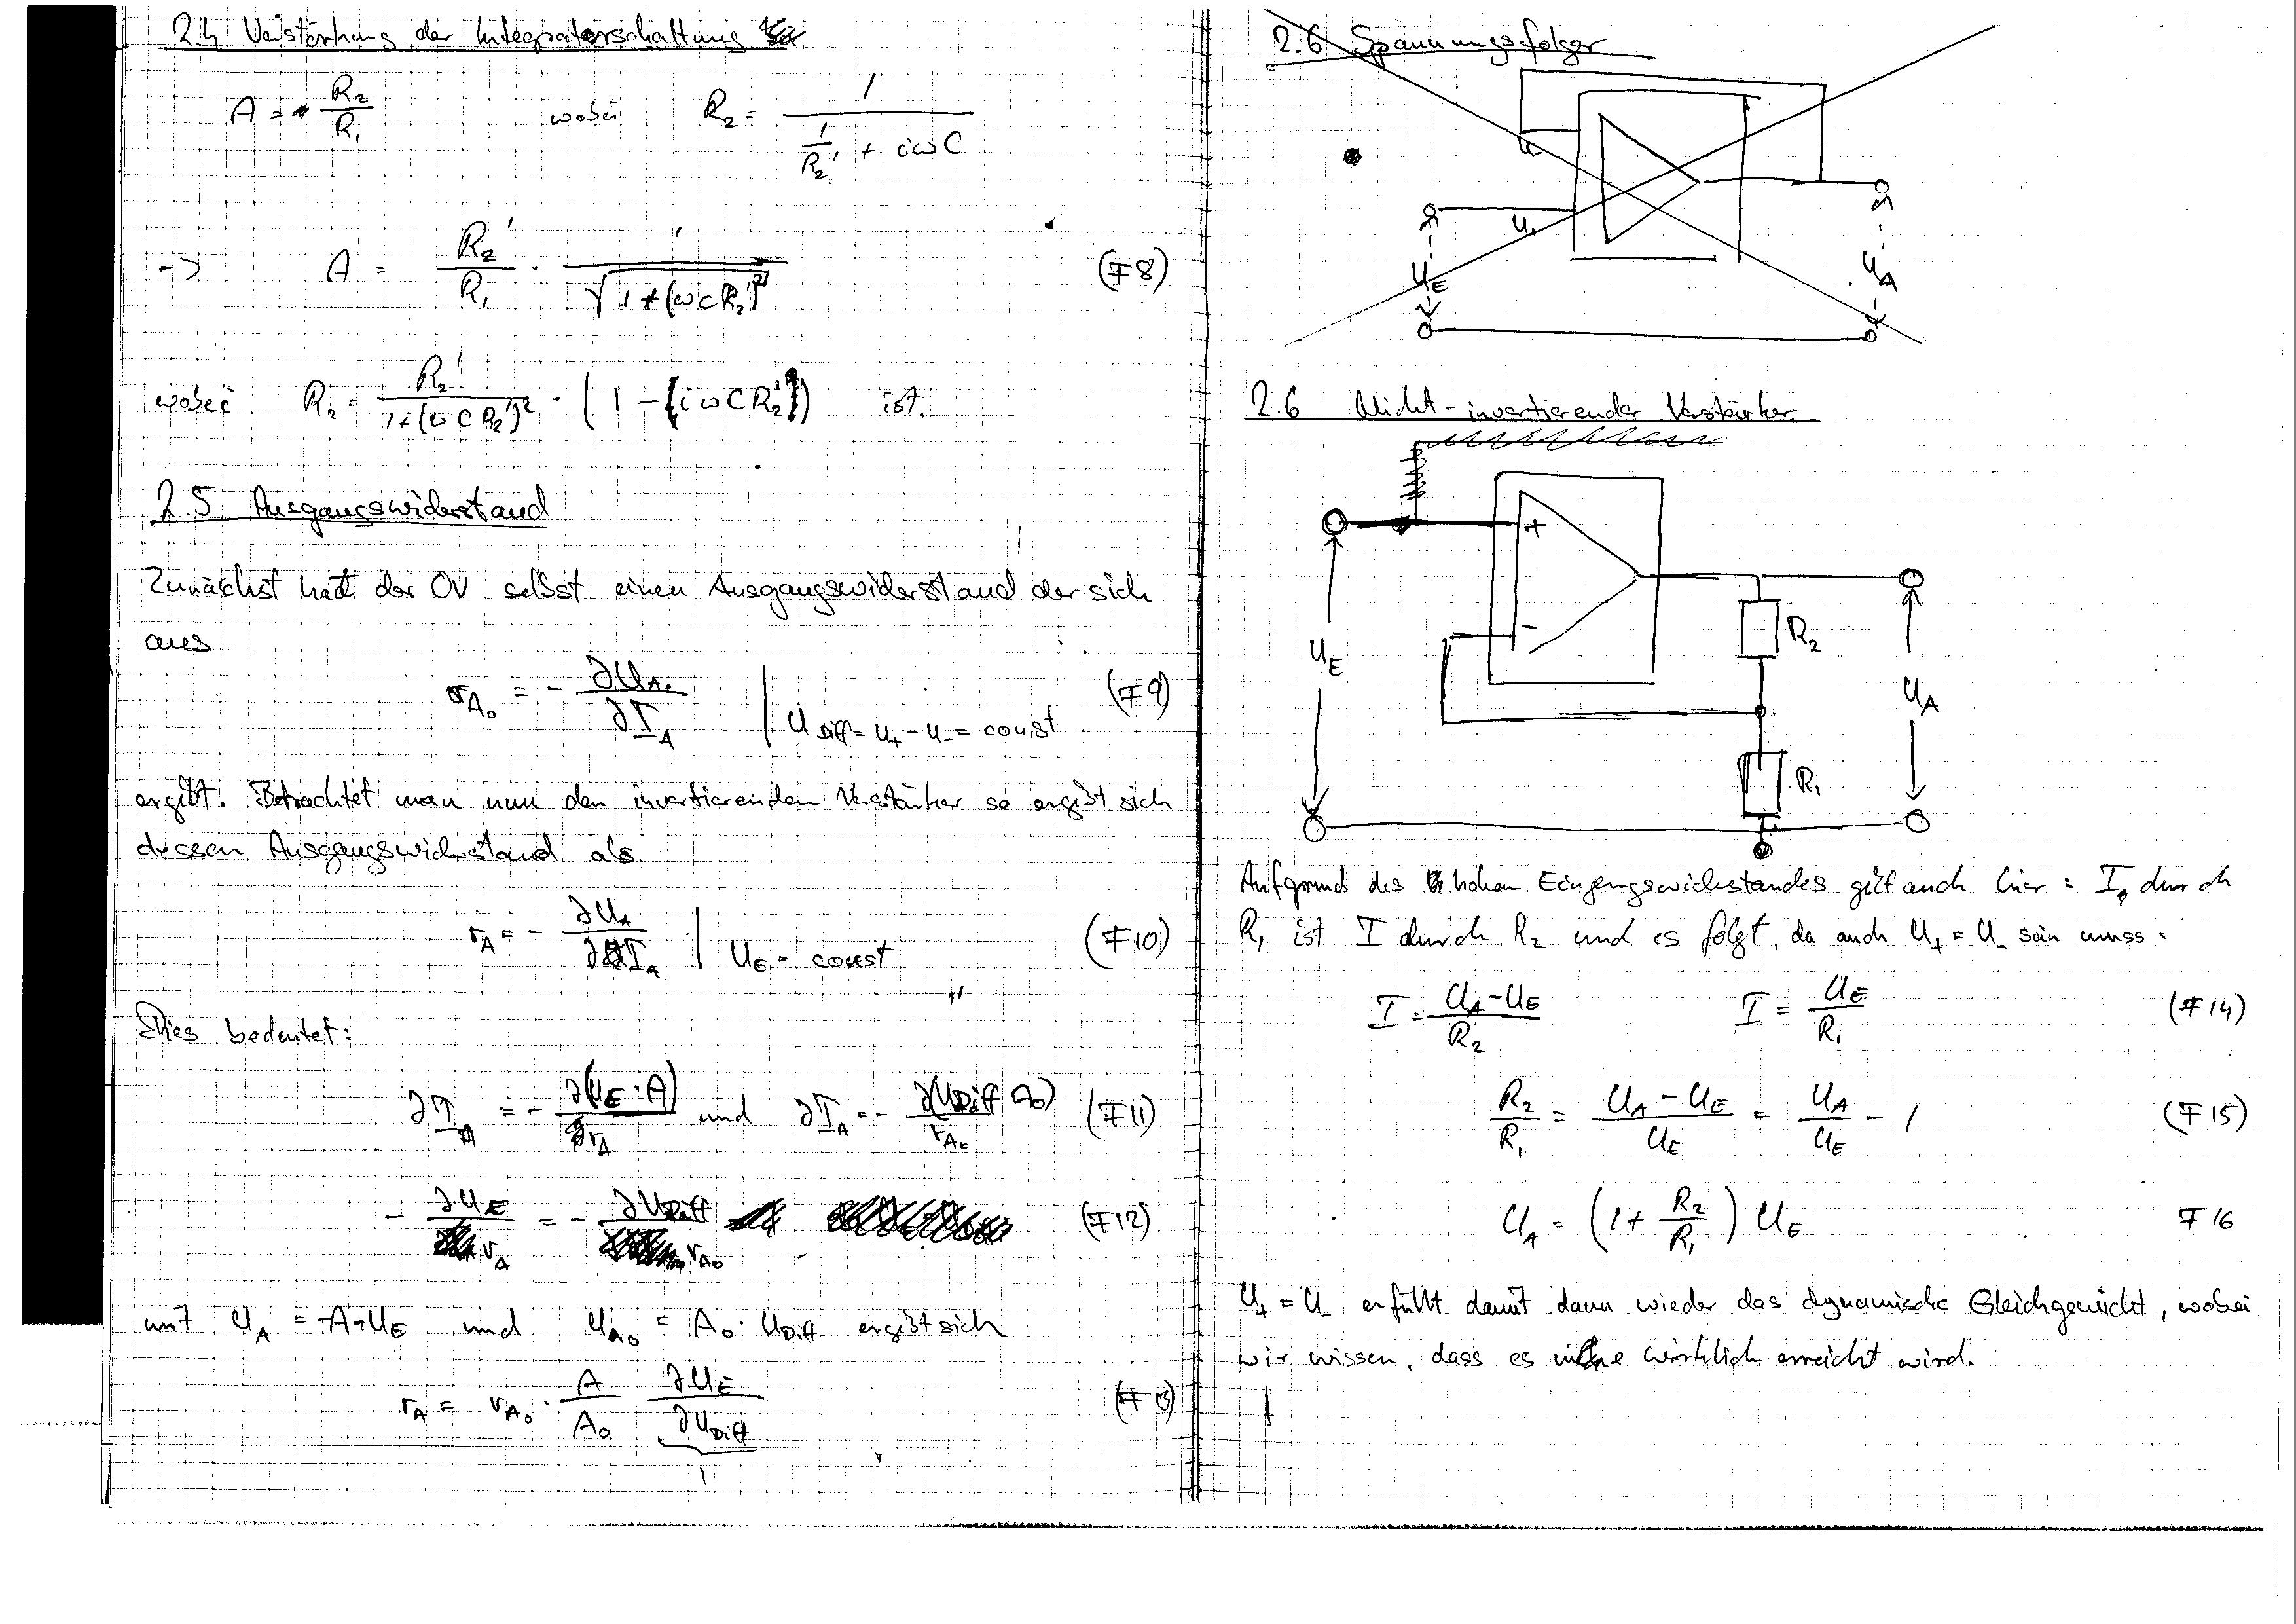 2.4 Verstärkung der Integratorschaltung
A = R₂/R₁ wobei R₂ = 1/(1/R₂' + iωC)
-> A = R₂'/R₁ · 1/√(1+(ωCR₂')²) (F8)
wobei R₂ = R₂'/(1+(ωCR₂')²) · (1-(iωCR₂')) ist.
2.5 Ausgangswiderstand
Zunächst hat der OV selbst einen Ausgangswiderstand der sich
aus
r_A₀ = - ∂U_A₀/∂I_A | U_Diff = U₊ - U₋ = const (F9)
ergibt. Betrachtet man nun den invertierenden Verstärker so ergibt sich
dessen Ausgangswiderstand als
r_A = - ∂U_A/∂I_A | U_E = const (F10)
Dies bedeutet:
∂I_A = - ∂(U_E · A)/r_A und ∂I_A = - ∂(U_Diff A₀)/r_A₀ (F11)
- ∂U_E/r_A = - ∂U_Diff/r_A₀ (F12)
mit U_A = -A·U_E und U_A₀ = A₀ · U_Diff ergibt sich
r_A = r_A₀ · A/A₀ ∂U_E/∂U_Diff (F13)
1
2.6 Spannungsfolger
U₋
U₊
U_E
U_A
2.6 Nicht-invertierender Verstärker
+
-
R₂
U_E
U_A
R₁
Aufgrund des hohen Eingangswiderstandes gilt auch hier: I durch
R₁ ist I durch R₂ und es folgt, da auch U₊ = U₋ sein muss.
I = (U_A - U_E)/R₂ I = U_E/R₁ (F14)
R₂/R₁ = (U_A - U_E)/U_E = U_A/U_E - 1 (F15)
U_A = (1 + R₂/R₁) U_E F16
U₊ = U₋ erfüllt damit dann wieder das dynamische Gleichgewicht, wobei
wir wissen, dass es nie wirklich erreicht wird.